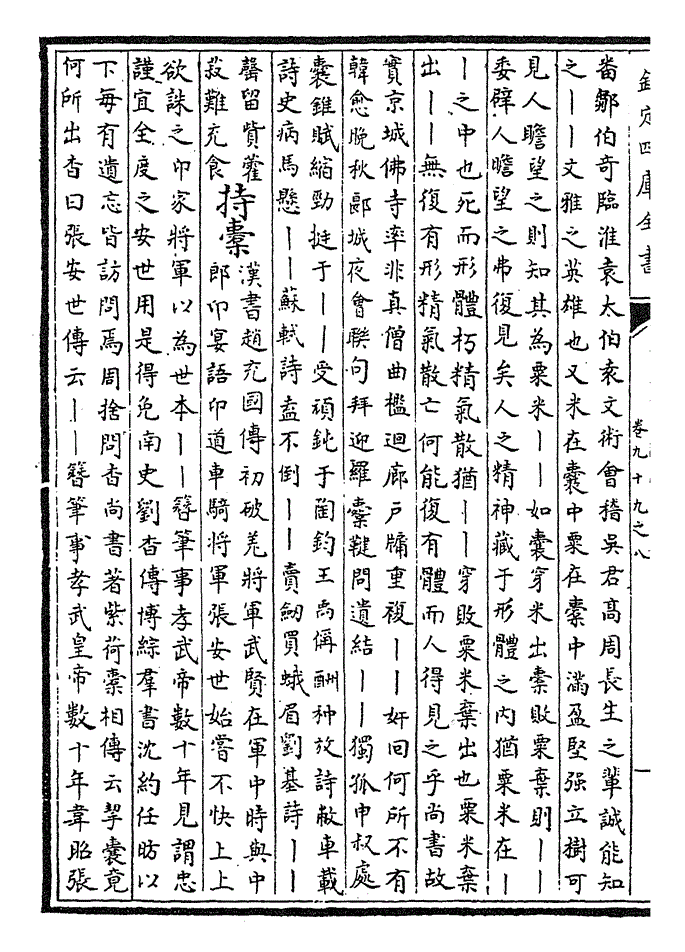 欽定四庫全書
卷九十九之八
一
畨鄒伯奇臨淮袁太伯袁文術會稽吳君髙周長生之輩誠能知
之——文雅之英雄也又米在囊中粟在橐中滿盈堅强立樹可
見人瞻望之則知其為粟米——如囊穿米出橐敗粟棄則——
委辟人瞻望之弗復見矣人之精神藏于形體之内猶粟米在—
—之中也死而形體朽精氣散猶——穿敗粟米棄出也粟米棄
出——無復有形精氣散亡何能復有體而人得見之乎尚書故
實京城佛寺率非真僧曲檻迴廊户牖重複——奸回何所不有
韓愈晚秋郾城夜會聯句拜迎羅橐鞬問遺結——獨孤申叔處
囊錐賦縮勁挺于——受頑鈍于陶鈞王禹偁酬种放詩敝車載
詩史病馬懸——蘇軾詩盍不倒——賣劒買蛾眉劉基詩——
罄留貲藿
菽難充食
持橐
漢書趙充國傳初破羌將軍武賢在軍中時與中
郎卬宴語卬道車騎將軍張安世始嘗不快上上
欲誅之卬家將軍以為世本——簪筆事孝武帝數十年見謂忠
謹宜全度之安世用是得免南史劉杳傳博綜羣書沈約任昉以
下毎有遺忘皆訪問焉周捨問杳尚書著紫荷橐相傳云挈囊竟
何所出杳曰張安世傳云——簪筆事孝武皇帝數十年韋昭張